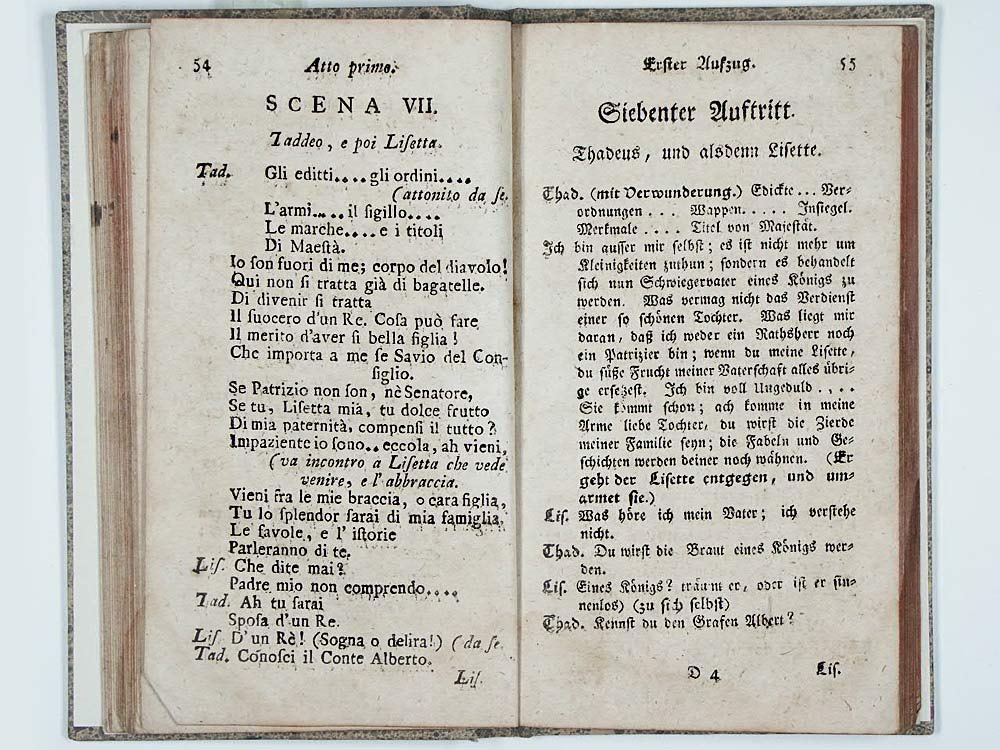 54 Atto primo.
SCENA VII.
Taddeo, e poi Liſetta.
Tad. Gli editti.... gli ordini....
(attonito da ſe.
L'armi.... il ſigillo....
Le marche.... e i titoli
Di Maeſtà.
Io ſon fuori di me; corpo del diavolo!
Qui non ſi tratta già di bagatelle.
Di divenir ſi tratta
Il ſuocero d'un Re. Coſa può fare
Il merito d'aver ſi bella figlia!
Che importa a me ſe Savio del Con-
ſiglio.
Se Patrizio non ſon, nè Senatore,
Se tu, Liſetta mia, tu dolce frutto
Di mia paternità, compenſi il tutto?
Impaziente io ſono.. eccola, ah vieni,
(va incontro a Liſetta che vede
venire, e l'abbraccia.
Vieni fra le mie braccia, o cara figlia,
Tu lo ſplendor ſarai di mia famiglia,
Le favole, e l'iſtorie
Parleranno di te.
Liſ. Che dite mai?
Padre mio non comprendo....
Tad. Ah tu ſarai
Spoſa d'un Re.
Liſ. D'un Rè! (Sogna o delira!) (da ſe.
Tad. Conoſci il Conte Alberto.
Liſ.
Erſter Aufzug. 55
Siebenter Auftritt.
Thadeus, und alsdenn Liſette.
Thad. (mit Verwunderung.) Edickte... Ver-
ordnungen... Wappen..... Inſiegel.
Merkmale.... Titel von Majeſtät.
Ich bin auſſer mir ſelbſt; es iſt nicht mehr um
Kleinigkeiten zuthun; ſondern es behandelt
ſich nun Schwiegervater eines Königs zu
werden. Was vermag nicht das Verdienſt
einer ſo ſchönen Tochter. Was liegt mir
daran, daß ich weder ein Rathsherr noch
ein Patrizier bin; wenn du meine Liſette,
du ſüße Frucht meiner Vaterſchaft alles übri-
ge erſetzeſt. Ich bin voll Ungeduld....
Sie kömmt ſchon; ach komme in meine
Arme liebe Tochter, du wirſt die Zierde
meiner Familie ſeyn; die Fabeln und Ge-
ſchichten werden deiner noch wähnen. (Er
geht der Liſette entgegen, und um-
armet ſie.)
Liſ. Was höre ich mein Vater; ich verſtehe
nicht.
Thad. Du wirſt die Braut eines Königs wer-
den.
Liſ. Eines Königs? träumt er, oder iſt er ſin-
nenlos) (zu ſich ſelbſt)
Thad. Kennſt du den Grafen Albert?
D 4 Liſ.